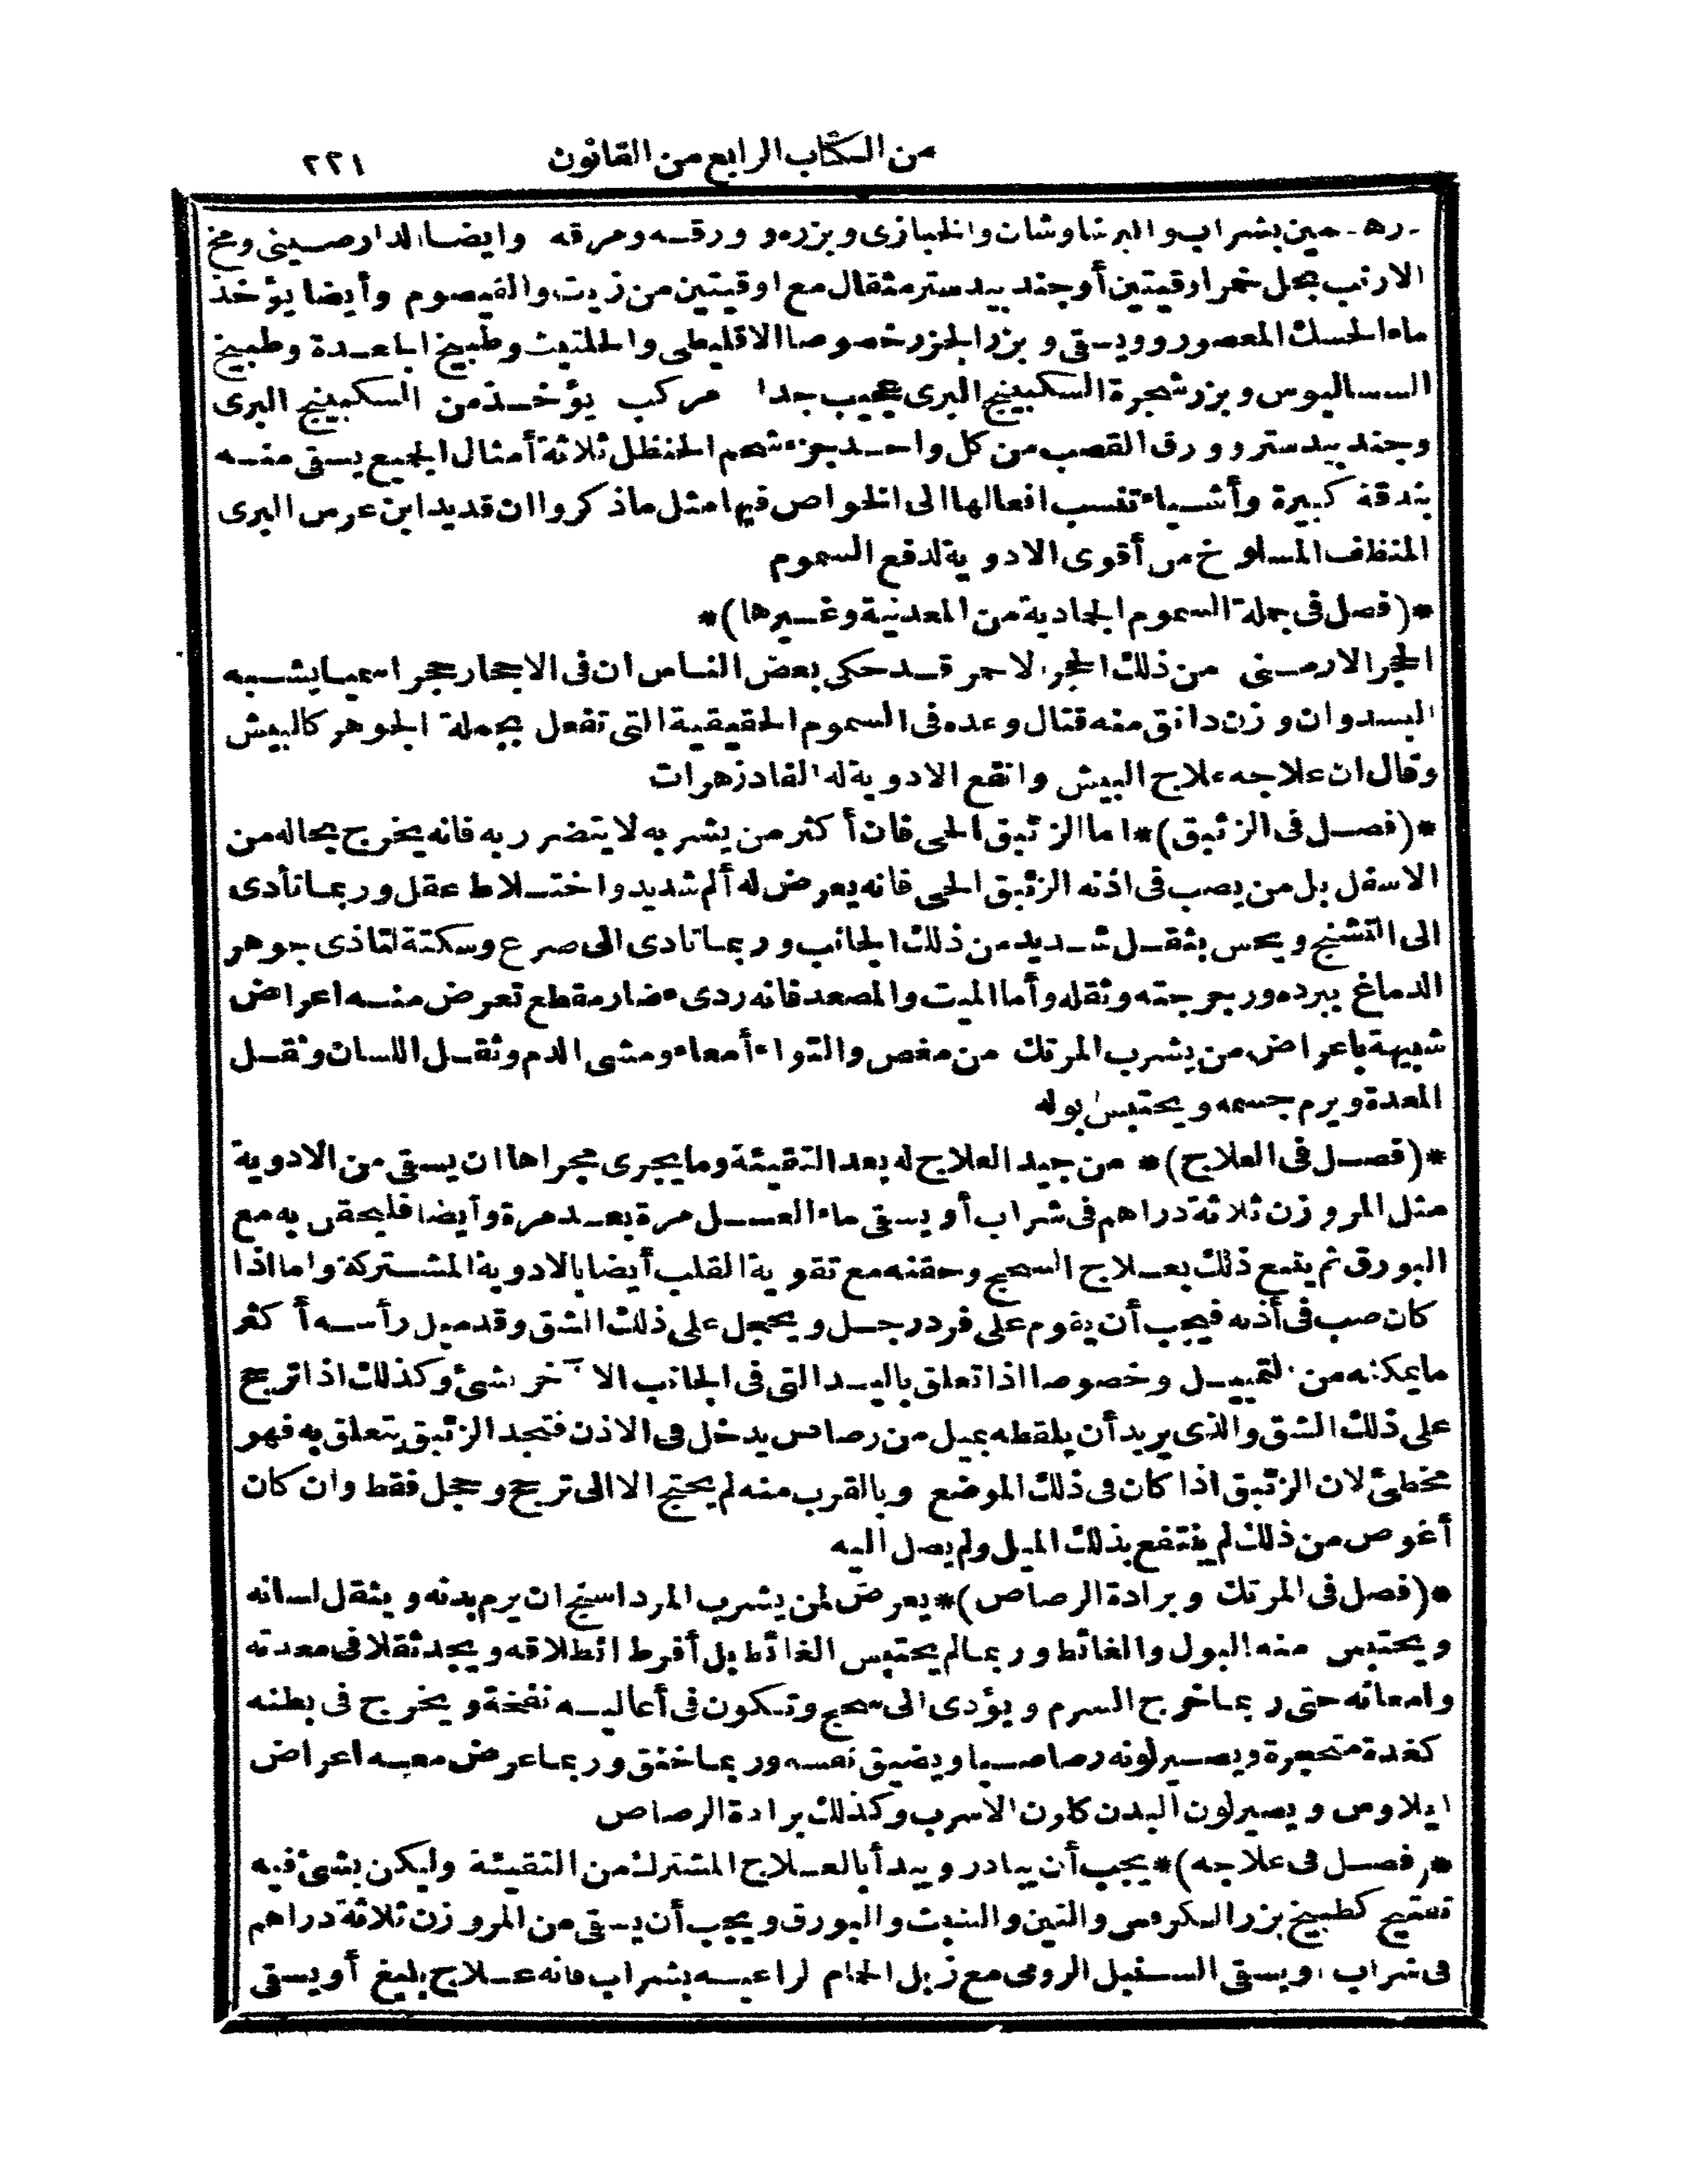 من الكتاب الرابع من القانون ٢٢١
درهمين بشراب والبرشاوشان والخبازى وبزره وورقه ومرقه وايضا الدارصينى ومخ
الارنب بخل خمر اوقيتين أو جندبيدستر مثقال مع اوقيتين من زيت والقيصوم وأيضا يؤخذ
ماء الحسك المعصور ويسقى وبزر الجزر خصوصا الاقليطى والحلتيث وطبيخ الجعدة وطبيخ
الساليوس وبزر شجرة السكبينج البرى عجيب جدا مركب يؤخذ من السكبينج البرى
وجندبيدستر وورق القصب من كل واحد جزء شحم الحنظل ثلاثة أمثال الجميع يسقى منه
بندقة كبيرة وأشياء تنسب افعالها الى الخواص فيها مثل ماذكروا ان قديد ابن عرس البرى
المنظف المسلوخ من أقوى الادوية لدفع السموم
*(فصل فى جملة السموم الجمادية من المعدنية وغيرها)*
الحجر الارمينى من ذلك الحجر الاحمر قد حكى بعض الناس ان فى الاحجار حجرا سميا يشبه
البسد وان وزن دانق منه قتال وعده فى السموم الحقيقية التى تفعل بجملة الجوهر كالبيش
وقال ان علاجه علاج البيش وانفع الادوية له الفادزهرات
*(فصل فى الزئبق)* اما الزئبق الحى فان أكثر من يشربه لا يتضرر به فانه يخرج بحاله من
الاسفل بل من يصب فى اذنه الزئبق الحى فانه يعرض له ألم شديد واختلاط عقل وربما تأدى
الى التشنج ويحس بثقل شديد من ذلك الجانب وربما تادى الى صرع وسكتة لتاذى جوهر
الدماغ ببرده ورجرجته وثقله وأما الميت والمصعد فانه ردىء ضار مقطع تعرض منه اعراض
شبيهة باعراض من يشرب المرتك من مغص والتواء أمعاء ومشى الدم وثقل اللسان وثقل
المعدة ويرم جسمه ويحتبس بوله
*(فصل فى العلاج)* من جيد العلاج له بعد التقيئة وما يجرى مجراها ان يسقى من الادوية
مثل المر وزن ثلاثة دراهم فى شراب أو يسقى ماء العسل مرة بعد مرة وأيضا فليحقن به مع
البورق ثم يتبع ذلك بعلاج السحج وحقنه مع تقوية القلب أيضا بالادوية المشتركة واما اذا
كان صب فى أذنه فيجب أن يقوم على فرد رجل ويحجل على ذلك الشق وقد ميل رأسه أكثر
ما يمكنه من التمييل وخصوصا اذا تعلق باليد التى فى الجانب الآخر بشئ وكذلك اذا ترجح
على ذلك الشق والذى يريد أن يلقطه بميل من رصاص يدخل فى الاذن فتجد الزئبق يتعلق به فهو
مخطئ لان الزئبق اذا كان فى ذلك الموضع وبالقرب منه لم يحتج الا الى ترجح وحجل فقط وان كان
أغوص من ذلك لم ينتفع بذلك الميل ولم يصل اليه
*(فصل فى المرتك وبرادة الرصاص)* يعرض لمن يشرب المرداسنج ان يرم بدنه ويثقل لسانه
ويحتبس منه البول والغائط وربما لم يحتبس الغائط بل أفرط انطلاقه ويجد ثقلا فى معدته
وامعائه حتى ربما خرج السرم ويؤدى الى سحج وتكون فى أعاليه نفخة ويخرج فى بطنه
كغدة متحجرة ويصير لونه رصاصيا ويضيق نفسه وربما خنق وربما عرض معه اعراض
ايلاوس ويصير لون البدن كلون الاسرب وكذلك برادة الرصاص
*(فصل فى علاجه)* يجب أن يبادر ويبدأ بالعلاج المشترك من التقيئة وليكن بشئ فيه
تفتيح كطبيخ بزر الكرفس والتين والشبت والبورق ويجب أن يسقى من المر وزن ثلاثة دراهم
فى شراب ويسقى السنبل الرومى مع زبل الحمام الراعبيه بشراب فانه علاج بليغ أو يسقى